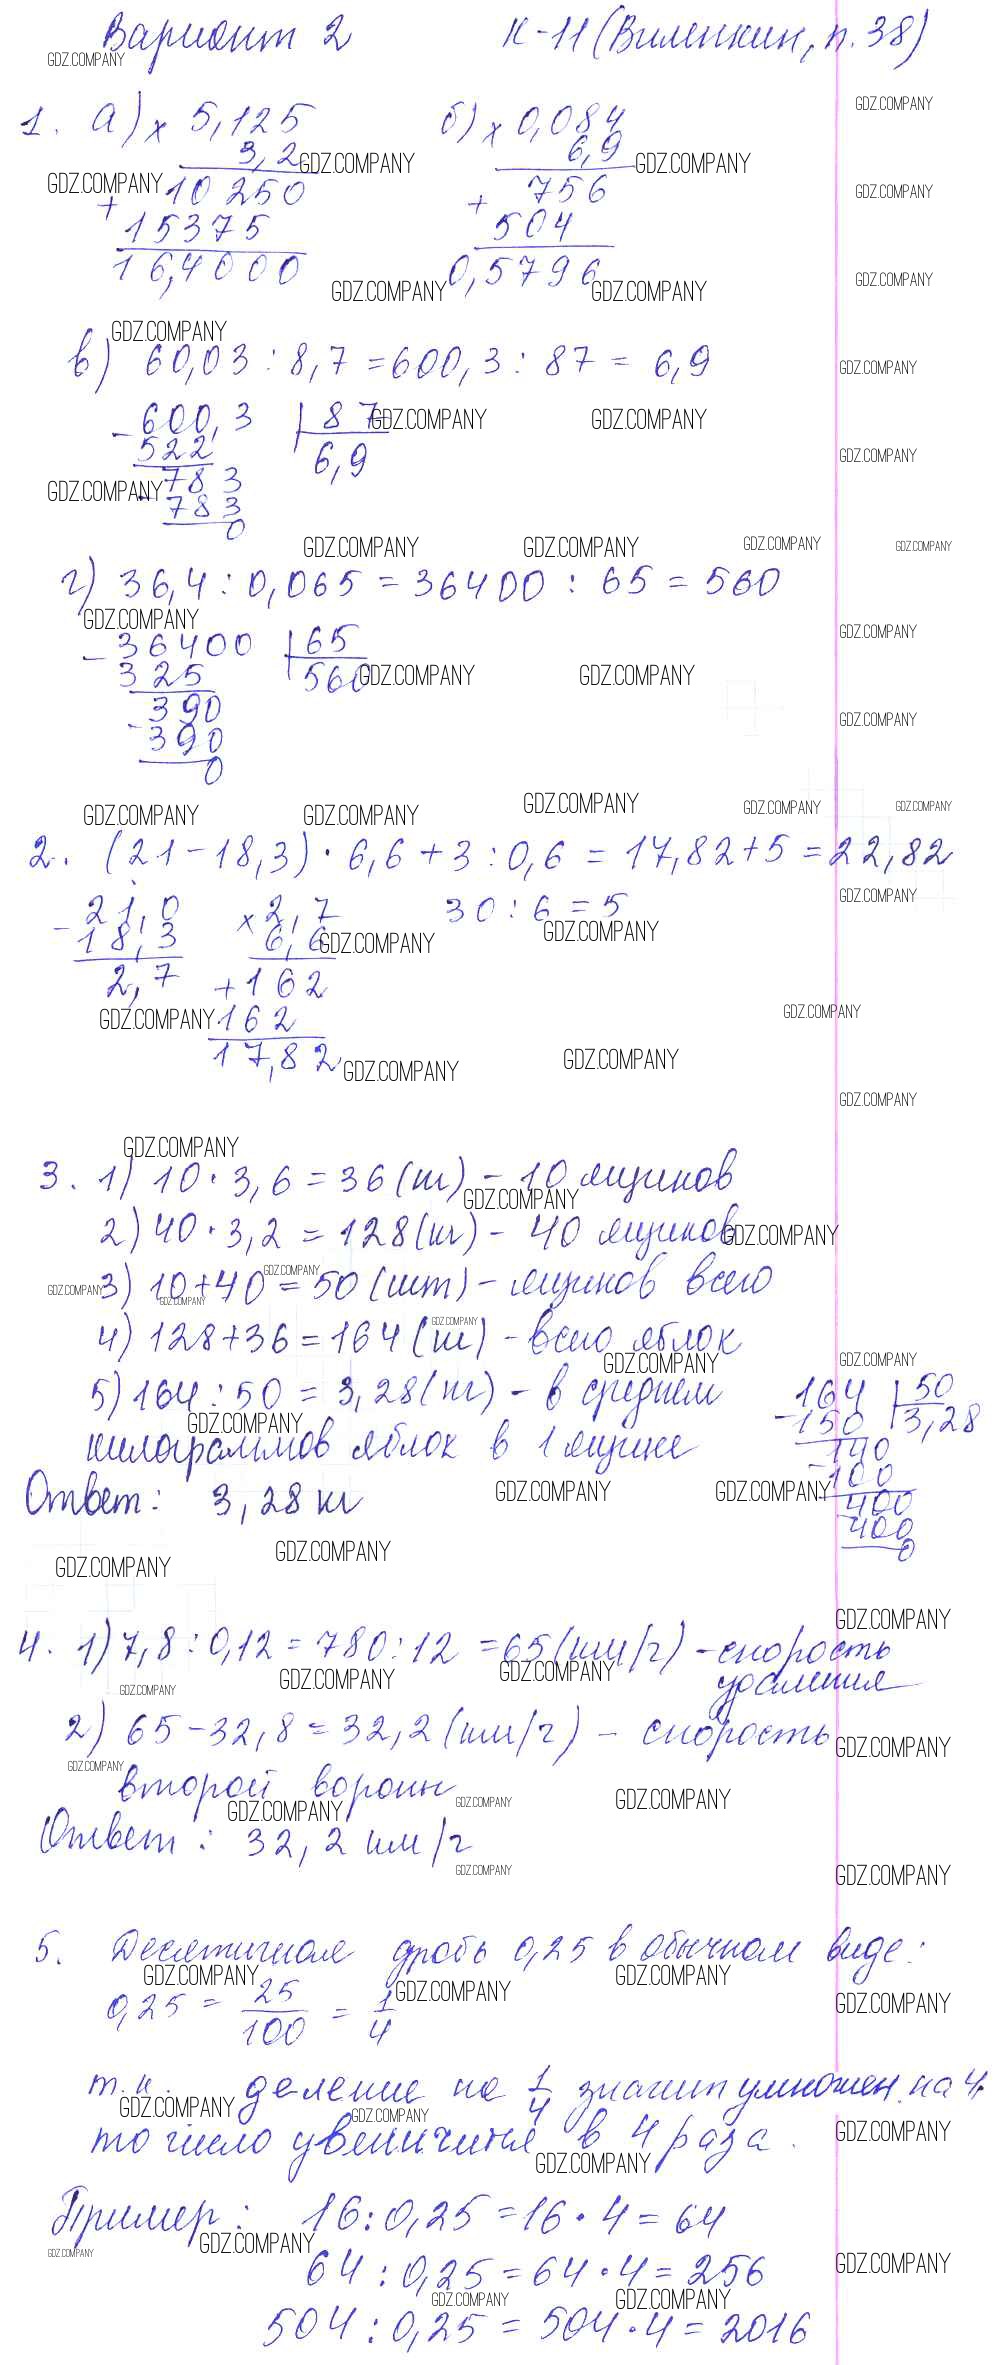 Вариант 2 К-11 (Виленкин, п. 38)
1. а) × 5,125 б) × 0,084
3,2 6,9
+ 10 250 + 756
15375 504
16,4000 0,5796
в) 60,03 : 8,7 = 600,3 : 87 = 6,9
- 600,3 | 87
522 6,9
- 783
783
0
г) 36,4 : 0,065 = 36400 : 65 = 560
- 36400 | 65
325 560
- 390
390
0
2. (21 - 18,3) · 6,6 + 3 : 0,6 = 17,82 + 5 = 22,82
- 21,0 × 2,7 30 : 6 = 5
18,3 6,6
2,7 + 162
162
17,82
3. 1) 10 · 3,6 = 36 (кг) - 10 ящиков
2) 40 · 3,2 = 128 (кг) - 40 ящиков
3) 10 + 40 = 50 (шт) - ящиков всего
4) 128 + 36 = 164 (кг) - всего яблок
5) 164 : 50 = 3,28 (кг) - в среднем
килограммов яблок в 1 ящике
- 164 | 50
150 3,28
- 140
100
400
400
0
Ответ: 3,28 кг
4. 1) 7,8 : 0,12 = 780 : 12 = 65 (км/ч) - скорость
удаления
2) 65 - 32,8 = 32,2 (км/ч) - скорость
второй ворон
Ответ: 32,2 км/ч
5. Десятичная дробь 0,25 в обычном виде:
0,25 = 25/100 = 1/4
т.к. деление на 1/4 значит умножен. на 4,
то число увеличится в 4 раза.
Пример: 16 : 0,25 = 16 · 4 = 64
64 : 0,25 = 64 · 4 = 256
504 : 0,25 = 504 · 4 = 2016
GDZ.COMPANY